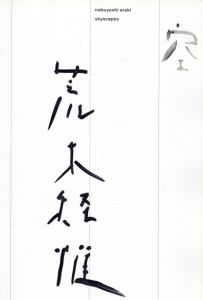 nobuyoshi araki
skyscapes
空
荒
木
経
惟